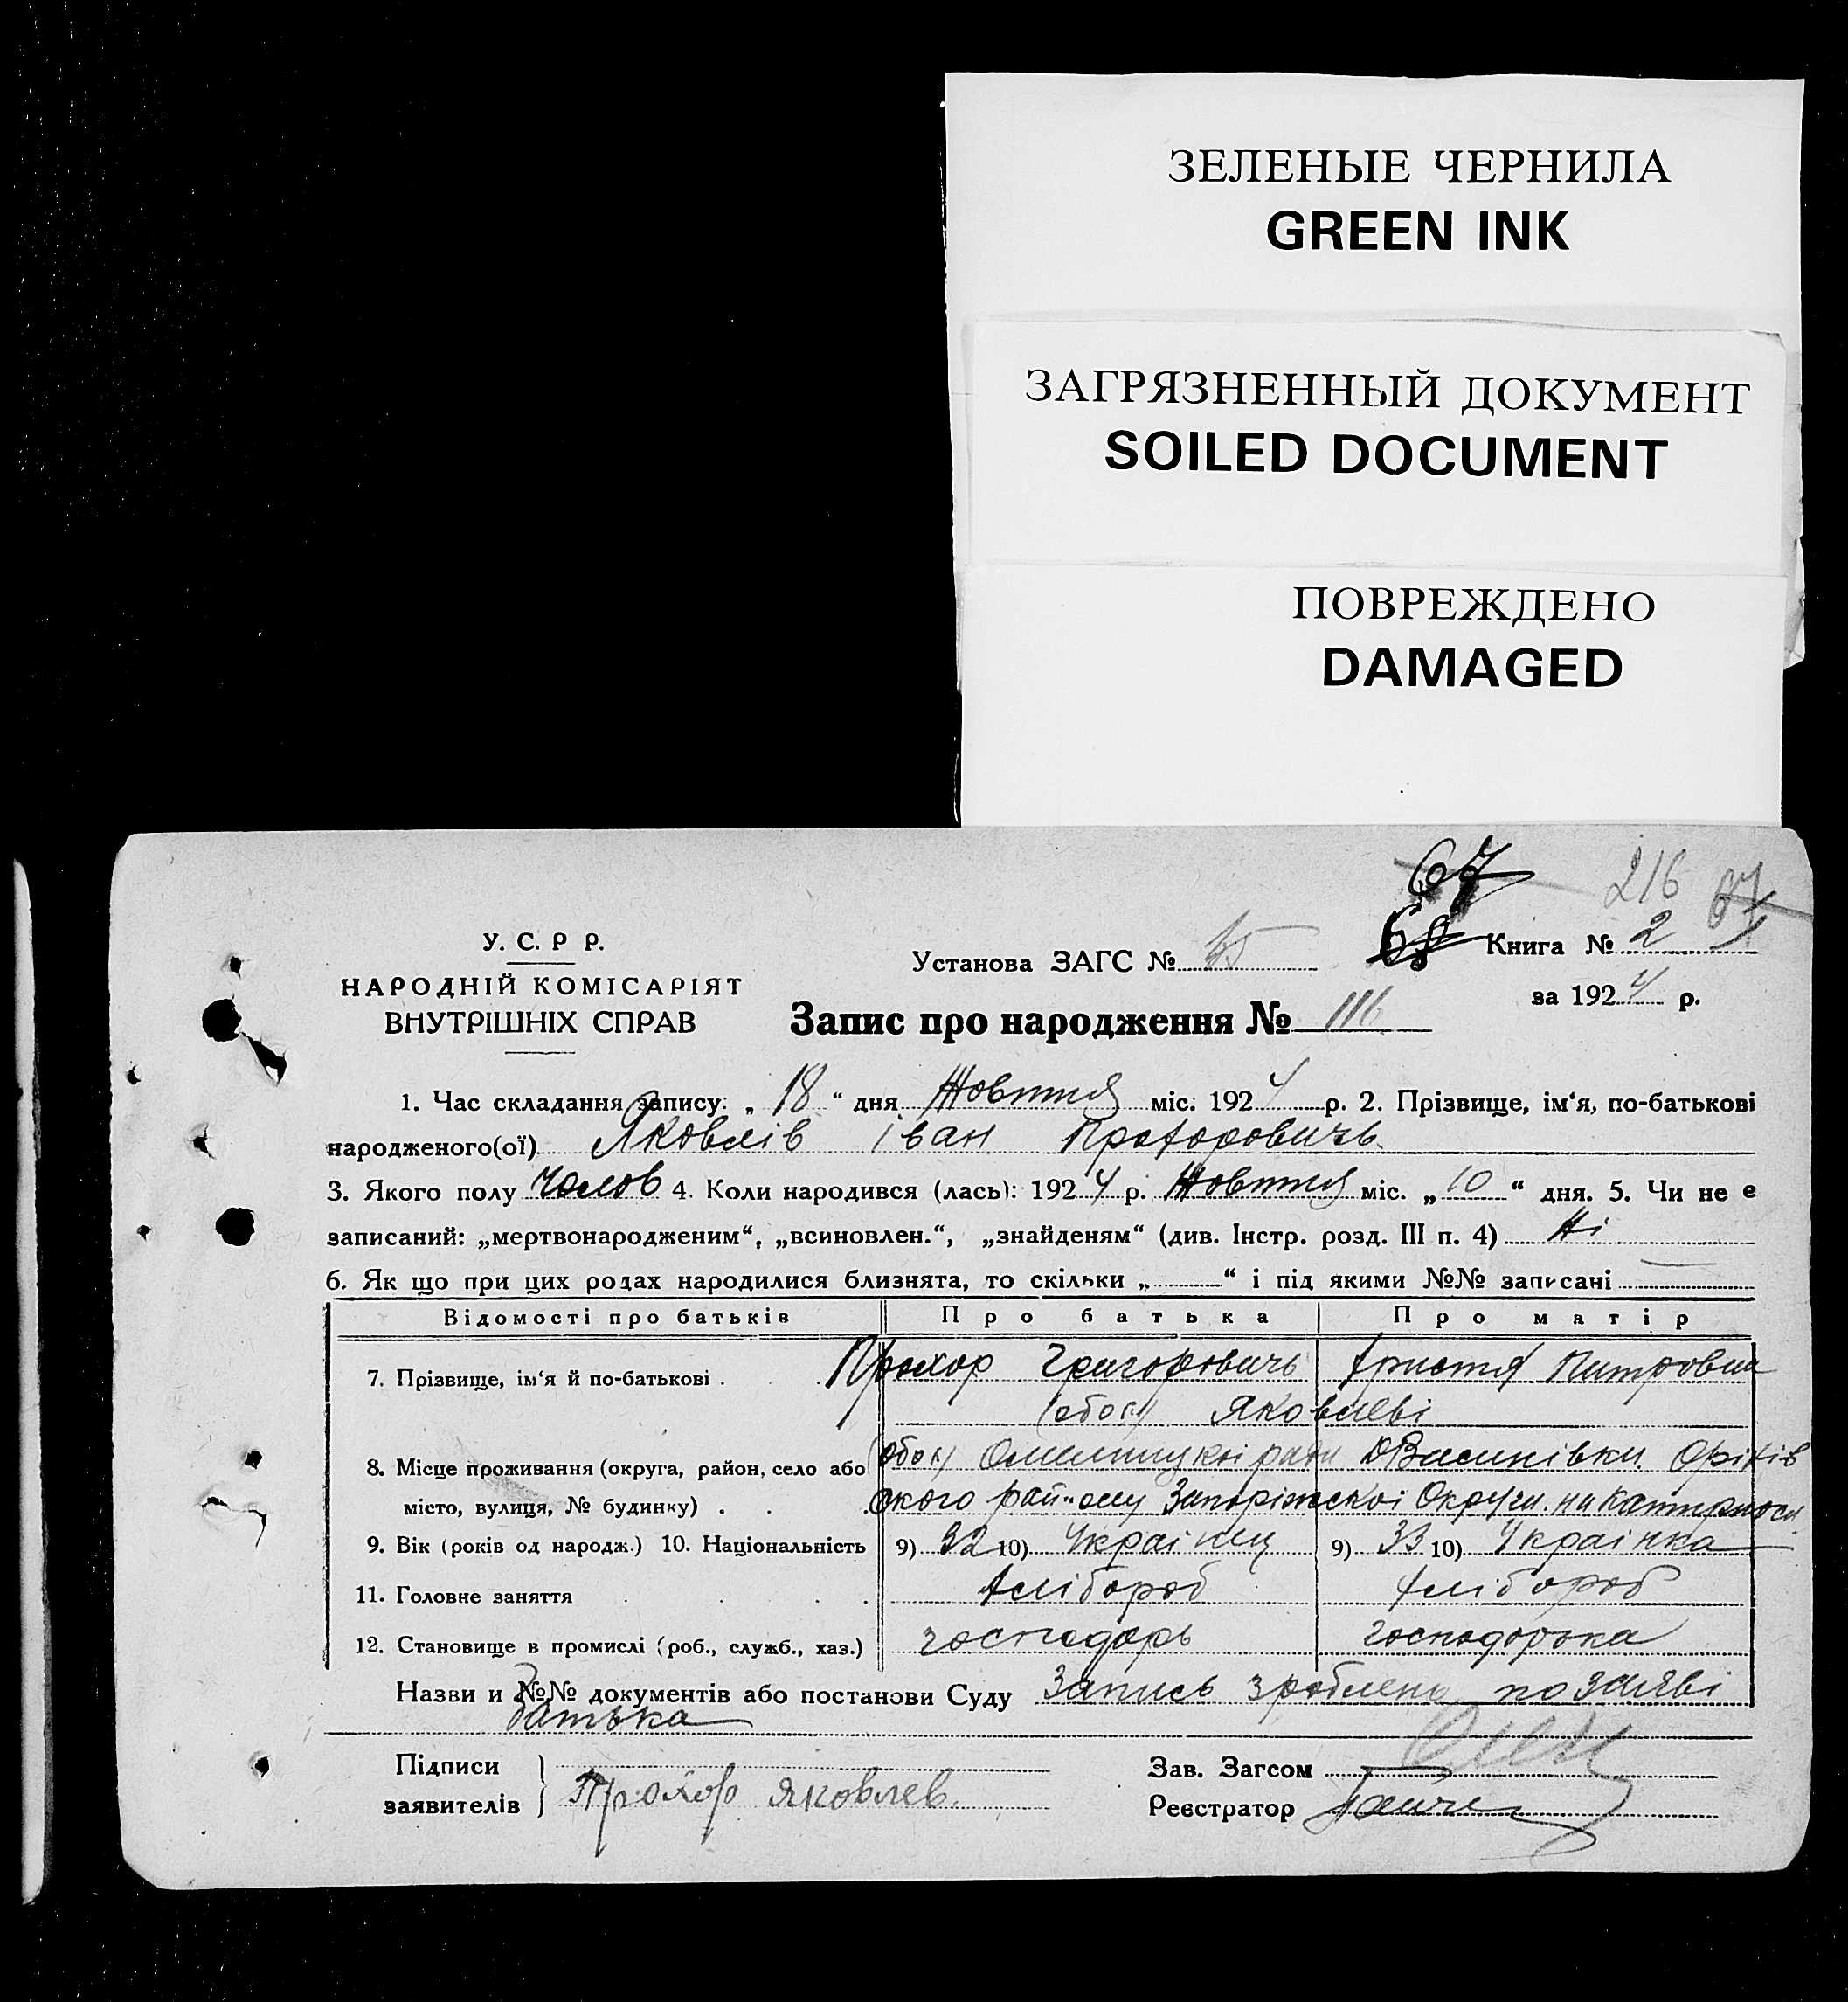 ЗЕЛЕНЫЕ ЧЕРНИЛА
GREEN INK
ЗАГРЯЗНЕННЫЙ ДОКУМЕНТ
SOILED DOCUMENT
ПОВРЕЖДЕНО
DAMAGED
67 216
У. С. Р Р.
НАРОДНІЙ КОМІСАРІЯТ
ВНУТРІШНІХ СПРАВ
Установа ЗАГС №
Книга № 2
за 1924 р.
Запис про народження № 116
1. Час складання запису: „ 18 “ дня Жовтня міс. 1924 р. 2. Прізвище, ім‘я, по-батькові
народженого(ої) Яковлів Іван Прохоровичь
3. Якого полу Чолов 4. Коли народився (лась): 1924 р. Жовтня міс. „ 10 “ дня. 5. Чи не є
записаний: „мертвонародженим“, „всиновлен.“, „знайденям“ (див. Інстр. розд. III п. 4) Ні
6. Як що при цих родах народилися близнята, то скільки „ “ і під якими №№ записані
Відомості про батьків Про батька Про матір
7. Прізвище, ім‘я й по-батькові Прохор Григоровичь Христя
Яковлеві
8. Місце проживання (округа, район, село або Оріхів
місто, вулиця, № будинку) ского Запоріжскоі Округи
9. Вік (років од народж.) 10. Національність 9) 32 10) Украінец 9) 33 10) Украінка
11. Головне заняття Хлібороб Хлібороб
12. Становище в промислі (роб., служб., хаз.) господарь господорька
Назви и №№ документів або постанови Суду Запись зроблено по заяві
батька
Підписи
заявителів Прохор Яковлев.
Зав. Загсом
Реєстратор